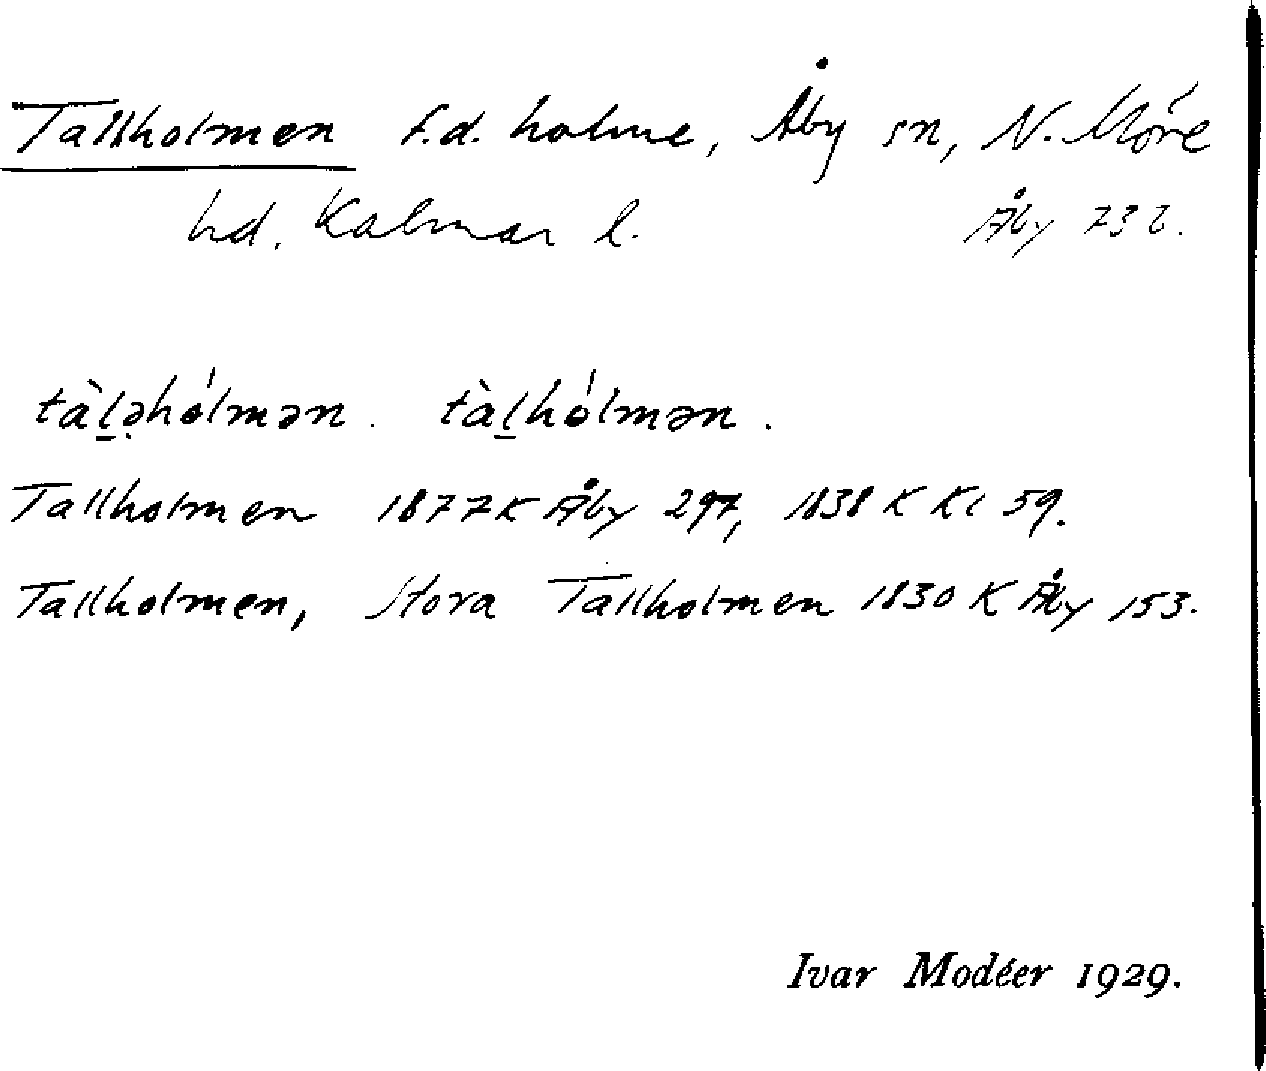 Tallholmen f.d. holme, Åby sn, N. Möre
hd. Kalmar l. Åby 732.
tàl̠ə̣hólmən. tàl̠hólmən.
Tallholmen 1877 K Åby 297, 1838 K Kl 59.
Tallholmen, Stora Tallholmen 1830 K Åby 153.
Ivar Modéer 1929.